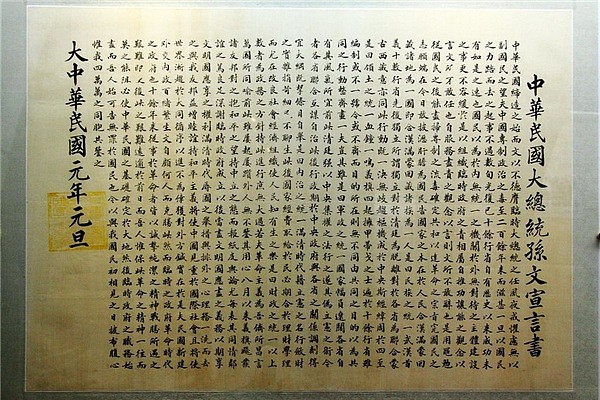 中華民國大總統孫文宣言書
中華民國締造之始而文以不德膺臨時大總統之任夙夜戒懼慮無以
副國民之望夫中國專制政治之毒至二百餘年來而滋甚一旦以國民
之力踣而去之起事不過數旬光復已十餘行省自有歷史以來成功未
有如是之速也國民以為於內無統一之機關於外無對待之主體建設
之事更不容緩於是以組織臨時政府之責相屬自推功讓能之觀念以
言文所不敢任也自服務盡責之觀念以言則文所不敢辭也是用黽勉
從國民之後能盡掃專制之流毒確定共和以達革命之宗旨完國民之
志願端在今日敢披瀝肝膽為國民告國家之本在於人民合漢滿蒙回
藏諸地為一國即合漢滿蒙回藏諸族為一人是曰民族之統一武漢首
義十數行省先後獨立所謂獨立對於清廷為脫離對於各省為聯合蒙
古西藏意亦同此行動既一決無歧趨樞機成於中央斯經緯周於四至
是曰領土之統一血鐘一鳴義旗四起擁甲帶戈之士遍於十餘行省雖
編制或不一號令或不齊而目的所在則無不同由共同之目的以為共
同之行動整齊畫一夫豈其難是曰軍政之統一國家幅員遼闊各省自
有其風氣所宜前此清廷強以中央集權之法行之遂其偽立憲之術今
者各省聯合互謀自治此後行政期於中央政府與各省之關係調劑得
宜大綱既挈條目自舉是曰內治之統一滿清時代藉立憲之名行斂財
之實雜捐苛細民不聊生此後國家經費取給於民必期合於理財學理
而尤在改良社會經濟組織使人民知有生之樂是曰財政之統一以上
數者為政務之方針持此進行庶無大過若夫革命主義為吾儕所昌言
萬國所同喻前此雖屢起屢躓外人無不鑒其用心八月以來義旗飆發
諸友邦對之抱和平之望持中立之態而報紙及輿論尤每表其同情鄰
誼之篤良足深謝臨時政府成立以後當盡文明國應盡之義務以期享
文明國應享之權利滿清時代辱國之舉措與排外之心理務一洗而去
之與我友邦益增睦誼持和平主義將使中國見重於國際社會且將使
世界漸趨於大同循序以進不為倖獲對外方針實在於是夫民國新建
外交內政百緒繁生文自顧何人而克勝此然而臨時之政府革命時代
之政府也十餘年來從事於革命者皆以誠摯純潔之精神戰勝所遇之
艱難即使後此之艱難遠逾於前日而吾人惟保此革命之精神一往而
莫之能阻必使中華民國之基礎確立於大地然後臨時政府之職務始
盡而吾人始可告無罪於國民也今以與我國民初相見之日披布腹心
惟我四萬萬之同胞共鑒之
大中華民國元年元旦